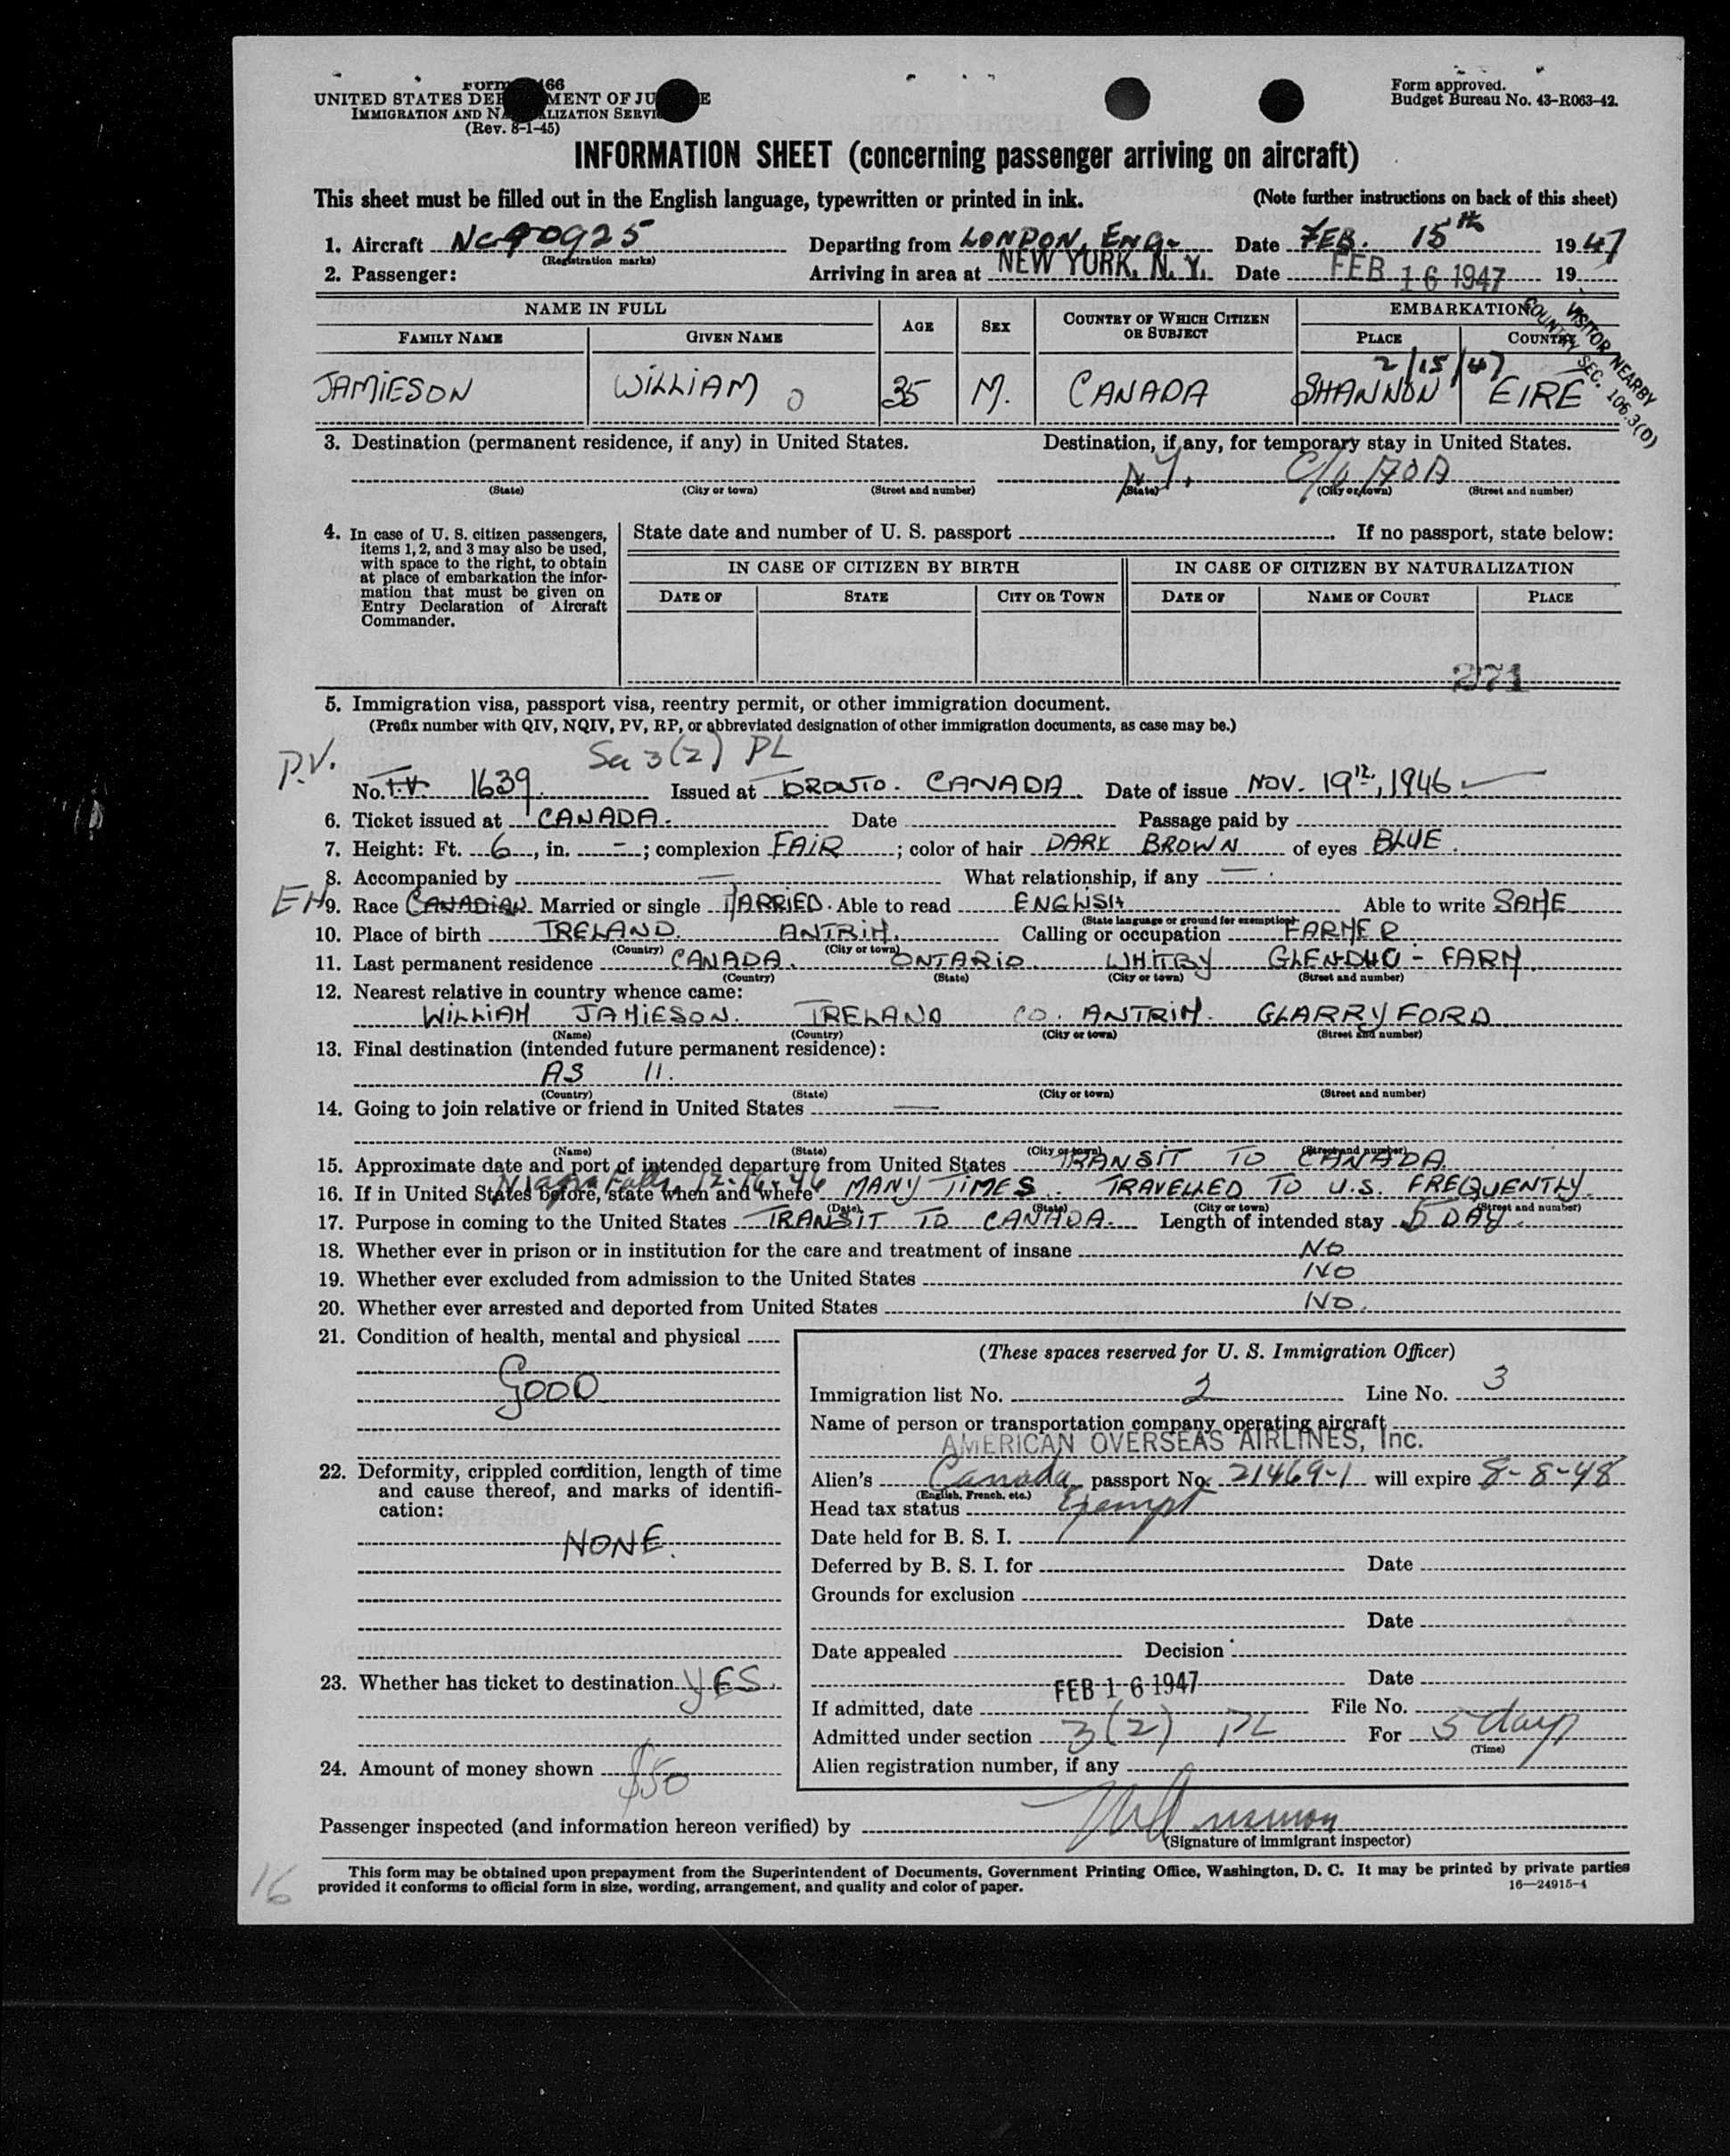 Form 466
UNITED STATES DEPARTMENT OF JUSTICE
IMMIGRATION AND NATURALIZATION SERVICE
(Rev. 8-1-45)
Form approved.
Budget Bureau No. 43-R063-42.
INFORMATION SHEET (concerning passenger arriving on aircraft)
This sheet must be filled out in the English language, typewritten or printed in ink. (Note further instructions on back of this sheet)
1. Aircraft NC90925 Departing from LONDON, ENG. Date FEB. 15th 1947
(Registration marks)
2. Passenger: Arriving in area at NEW YORK, N. Y. Date FEB 16 1947 19
NAME IN FULL AGE SEX COUNTRY OF WHICH CITIZEN OR SUBJECT EMBARKATION
FAMILY NAME GIVEN NAME PLACE COUNTRY
VISITOR NEARBY
COUNTRY SEC. 106.3(D)
2/15/47
JAMIESON WILLIAM O 35 M. CANADA SHANNON EIRE
3. Destination (permanent residence, if any) in United States. Destination, if any, for temporary stay in United States.
N.Y. C/O AOA
(State) (City or town) (Street and number) (State) (City or town) (Street and number)
4. In case of U. S. citizen passengers, items 1, 2, and 3 may also be used, with space to the right, to obtain at place of embarkation the information that must be given on Entry Declaration of Aircraft Commander.
State date and number of U. S. passport If no passport, state below:
IN CASE OF CITIZEN BY BIRTH IN CASE OF CITIZEN BY NATURALIZATION
DATE OF STATE CITY OR TOWN DATE OF NAME OF COURT PLACE
271
5. Immigration visa, passport visa, reentry permit, or other immigration document.
(Prefix number with QIV, NQIV, PV, RP, or abbreviated designation of other immigration documents, as case may be.)
P.V. Sec 3(2) PL
No. T.V. 1639. Issued at TORONTO. CANADA. Date of issue NOV. 19th, 1946
6. Ticket issued at CANADA. Date Passage paid by
7. Height: Ft. 6, in. -; complexion FAIR; color of hair DARK BROWN of eyes BLUE.
8. Accompanied by — What relationship, if any —
EN 9. Race CANADIAN Married or single MARRIED. Able to read ENGLISH Able to write SAME
(State language or ground for exemption)
10. Place of birth IRELAND. ANTRIM. Calling or occupation FARMER
(Country) (City or town)
11. Last permanent residence CANADA. ONTARIO WHITBY GLENDHU - FARM.
(Country) (State) (City or town) (Street and number)
12. Nearest relative in country whence came:
WILLIAM JAMIESON. IRELAND CO. ANTRIM. GLARRYFORD
(Name) (Country) (City or town) (Street and number)
13. Final destination (intended future permanent residence):
AS 11.
(Country) (State) (City or town) (Street and number)
14. Going to join relative or friend in United States —
(Name) (State) (City or town) (Street and number)
15. Approximate date and port of intended departure from United States TRANSIT TO CANADA
Niagra Falls 12-16-46
16. If in United States before, state when and where MANY TIMES. TRAVELLED TO U.S. FREQUENTLY.
(Date) (State) (City or town) (Street and number)
17. Purpose in coming to the United States TRANSIT TO CANADA. Length of intended stay 5 DAY.
18. Whether ever in prison or in institution for the care and treatment of insane NO
19. Whether ever excluded from admission to the United States NO
20. Whether ever arrested and deported from United States NO.
21. Condition of health, mental and physical
GOOD
22. Deformity, crippled condition, length of time and cause thereof, and marks of identification:
NONE.
23. Whether has ticket to destination YES.
24. Amount of money shown $50
(These spaces reserved for U. S. Immigration Officer)
Immigration list No. 2 Line No. 3
Name of person or transportation company operating aircraft
AMERICAN OVERSEAS AIRLINES, Inc.
Alien's Canada passport No. 21469-1 will expire 8-8-48
(English, French, etc.)
Head tax status Exempt
Date held for B. S. I.
Deferred by B. S. I. for Date
Grounds for exclusion
Date
Date appealed Decision
Date
If admitted, date FEB 16 1947 File No.
Admitted under section 3(2) PL For 5 days
(Time)
Alien registration number, if any
Passenger inspected (and information hereon verified) by
(Signature of immigrant inspector)
16
This form may be obtained upon prepayment from the Superintendent of Documents, Government Printing Office, Washington, D. C. It may be printed by private parties
provided it conforms to official form in size, wording, arrangement, and quality and color of paper. 16—24915-4